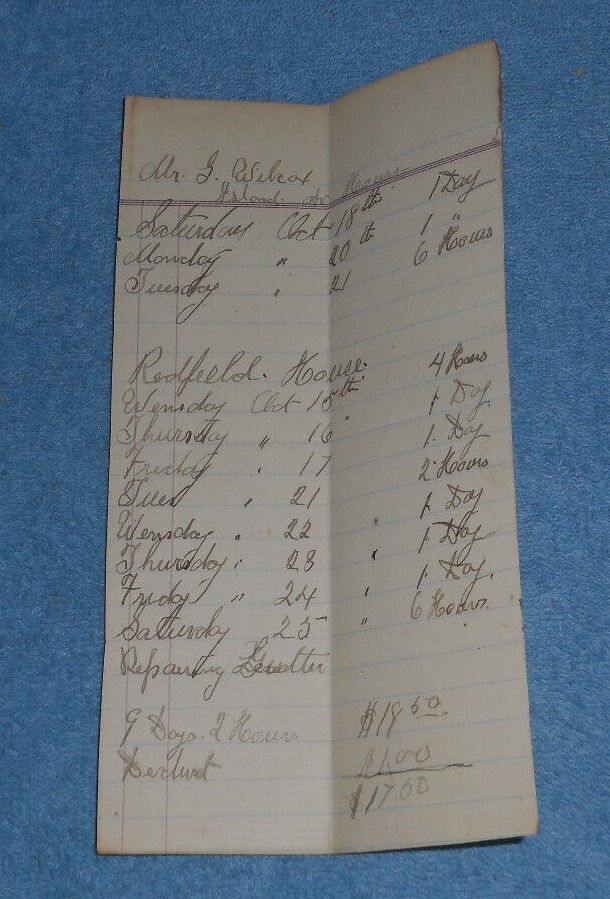 Mr. J. Wilcox
Island Av House
Saturday Oct 18th 1 Day
Monday " 20th 1 "
Tuesday " 21 6 Hours
Redfield. House.
Wensday Oct 15th 4 Hours
Thursday " 16 " 1 Day
Friday " 17 1. Day
Tues " 21 2 Hours
Wensday " 22 " 1 Day
Thursday " 23 " 1 Day
Friday " 24 " 1. Day.
Saturday 25 " 6 Hours.
Repairing Gutter
9 Days. 2 Hours $18.50
Deduct $1.00
$17.50